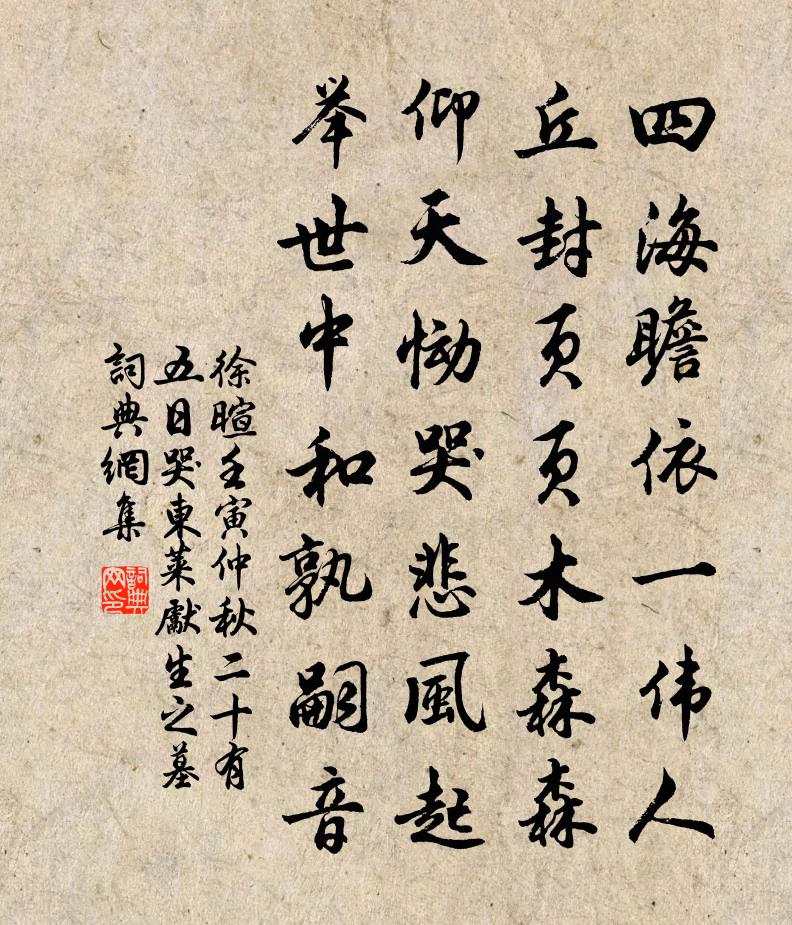 四海瞻依一伟人
丘封页页木森森
仰天恸哭悲風起
举世中和孰嗣音
徐暄壬寅仲秋二十有
五日哭東莱獻生之墓
詞典網集
詞典网印